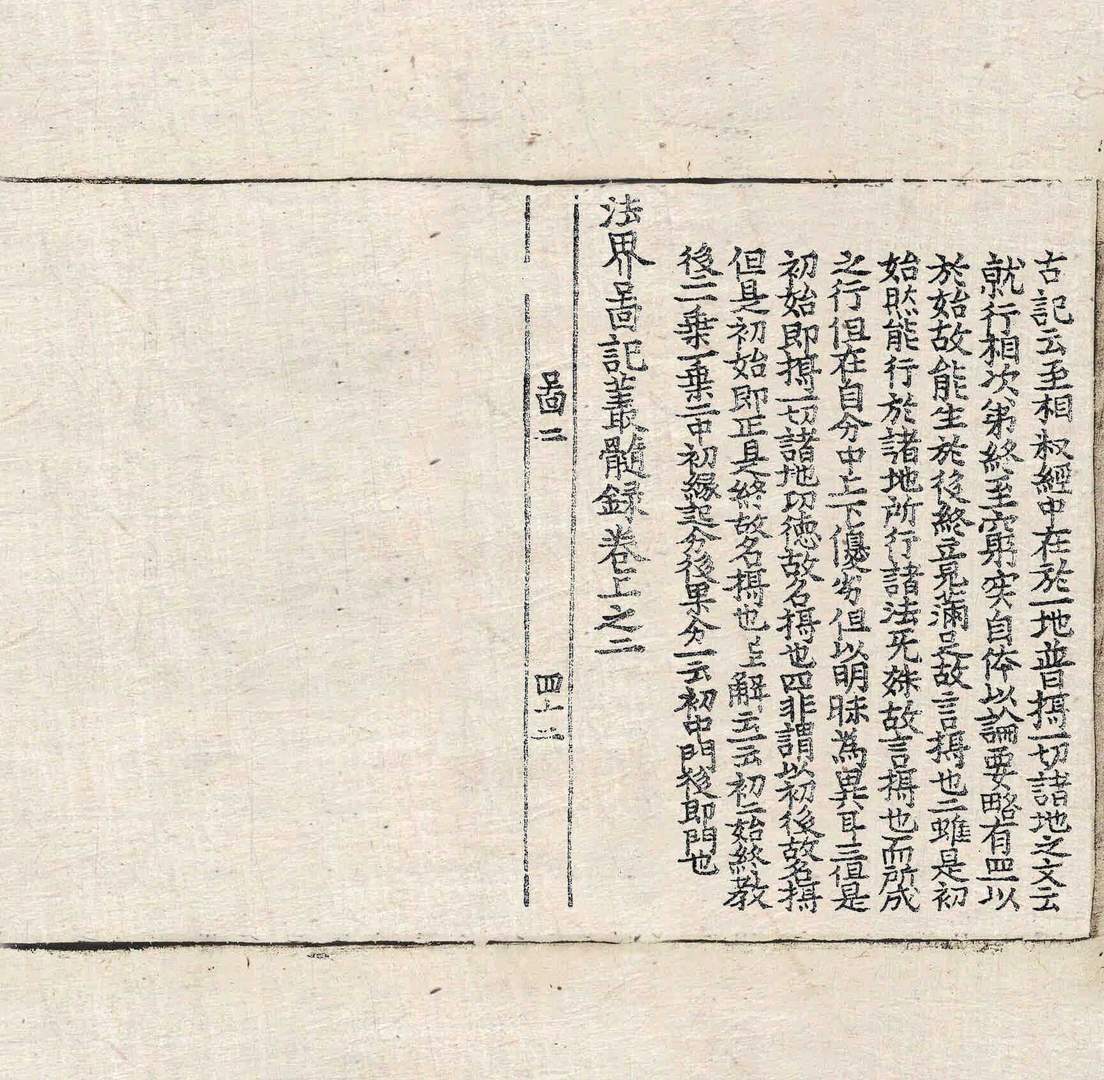 古記云至相叔經中在於一地普攝一切諸地之文云
就行相次第終至窮实自体以論要略有四一以
於始故能生於後終立究滿足故言攝也二雖是初
始然能行於諸地所行諸法无殊故言攝也而所成
之行但在自分中上下優劣但以明昧為異耳三但是
初始即攝一切諸地功德故名攝也四非謂以初後故名攝
但是初始即正是終故名攝也上解云一云初二始終教
後二乗一乗二中初縁起分後果分一云初中門後即門也
法界啚記䕺髓錄卷上之二
啚二
四十二